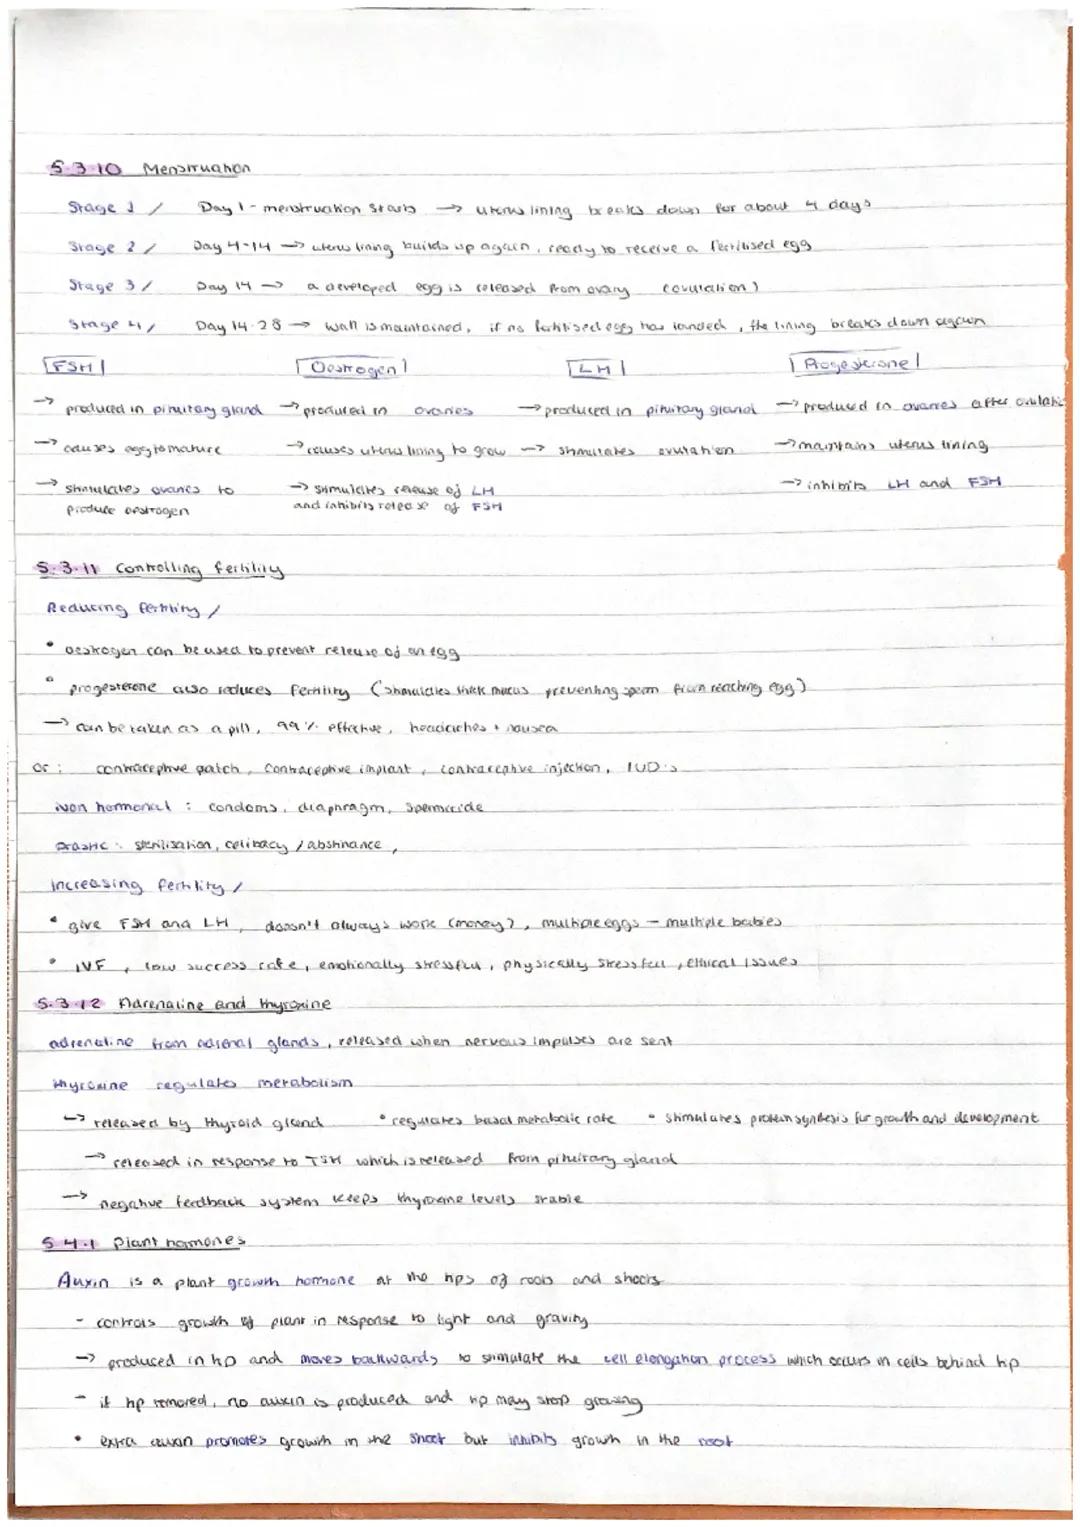 5.3.10 Menstruation
Stage 1 / Day 1 - menstruation starts → uterus lining breaks down for about 4 days
Stage 2 / Day 4-14 → uterus lining builds up again, ready to receive a fertilised egg
Stage 3 / Day 14 → a developed egg is released from ovary (ovulation)
Stage 4 / Day 14-28 → wall is maintained, if no fertilised egg has landed, the lining breaks down again
FSH Oestrogen LH Progesterone
→ produced in pituitary gland → produced in ovaries → produced in pituitary gland → produced in ovaries after ovulatio
→ causes egg to mature → causes uterus lining to grow → stimulates ovulation → maintains uterus lining
→ stimulates ovaries to → stimulates release of LH → inhibits LH and FSH
produce oestrogen and inhibits release of FSH
5.3.11 Controlling fertility
Reducing fertility /
• oestrogen can be used to prevent release of an egg
• progesterone also reduces fertility (stimulates thick mucus preventing sperm from reaching egg)
→ can be taken as a pill, 99% effective, headaches + nausea
or: contraceptive patch, contraceptive implant, contraceptive injection, IUD's
non hormonal: condoms, diaphragm, spermicide
drastic: sterilisation, celibacy / abstinance,
increasing fertility /
• give FSH and LH, doesn't always work (money?, multiple eggs - multiple babies
• IVF, low success rate, emotionally stressful, physically stressful, ethical issues
5.3.12 Adrenaline and thyroxine
adrenaline from adrenal glands, released when nervous impulses are sent
thyroxine regulates metabolism
→ released by thyroid gland • regulates basal metabolic rate • stimulates protein synthesis for growth and development
→ released in response to TSH which is released from pituitary gland
→ negative feedback system keeps thyroxine levels stable
5.4.1 Plant hormones
Auxin is a plant growth hormone at the tips of roots and shoots
- controls growth of plant in response to light and gravity
→ produced in tip and moves backwards to stimulate the cell elongation process which occurs in cells behind tip
- if tip removed, no auxin is produced and tip may stop growing
• extra auxin promotes growth in the shoot but inhibits growth in the root